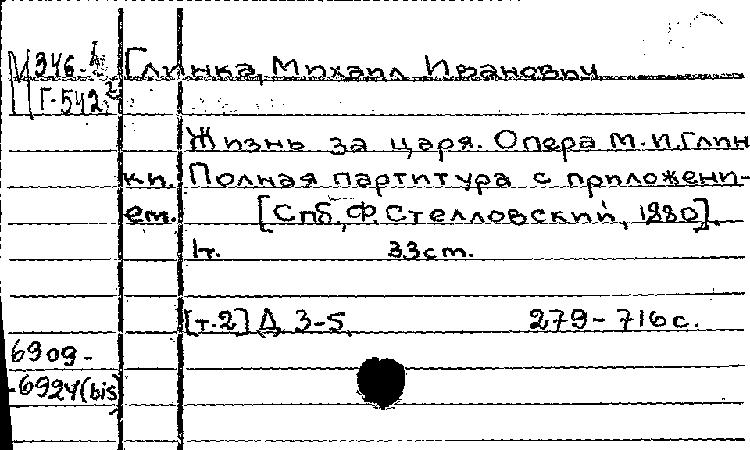 М 346.4 Глинка, Михаил Иванович
Г-542.2
Жизнь за царя. Опера М.И.Глин
ки. Полная партитура с приложени-
ем. [Спб., Ф. Стелловский, 1880].
1т. 33см.
[т.2] Д. 3-5. 279-716 с.
6909-
-6924(bis)